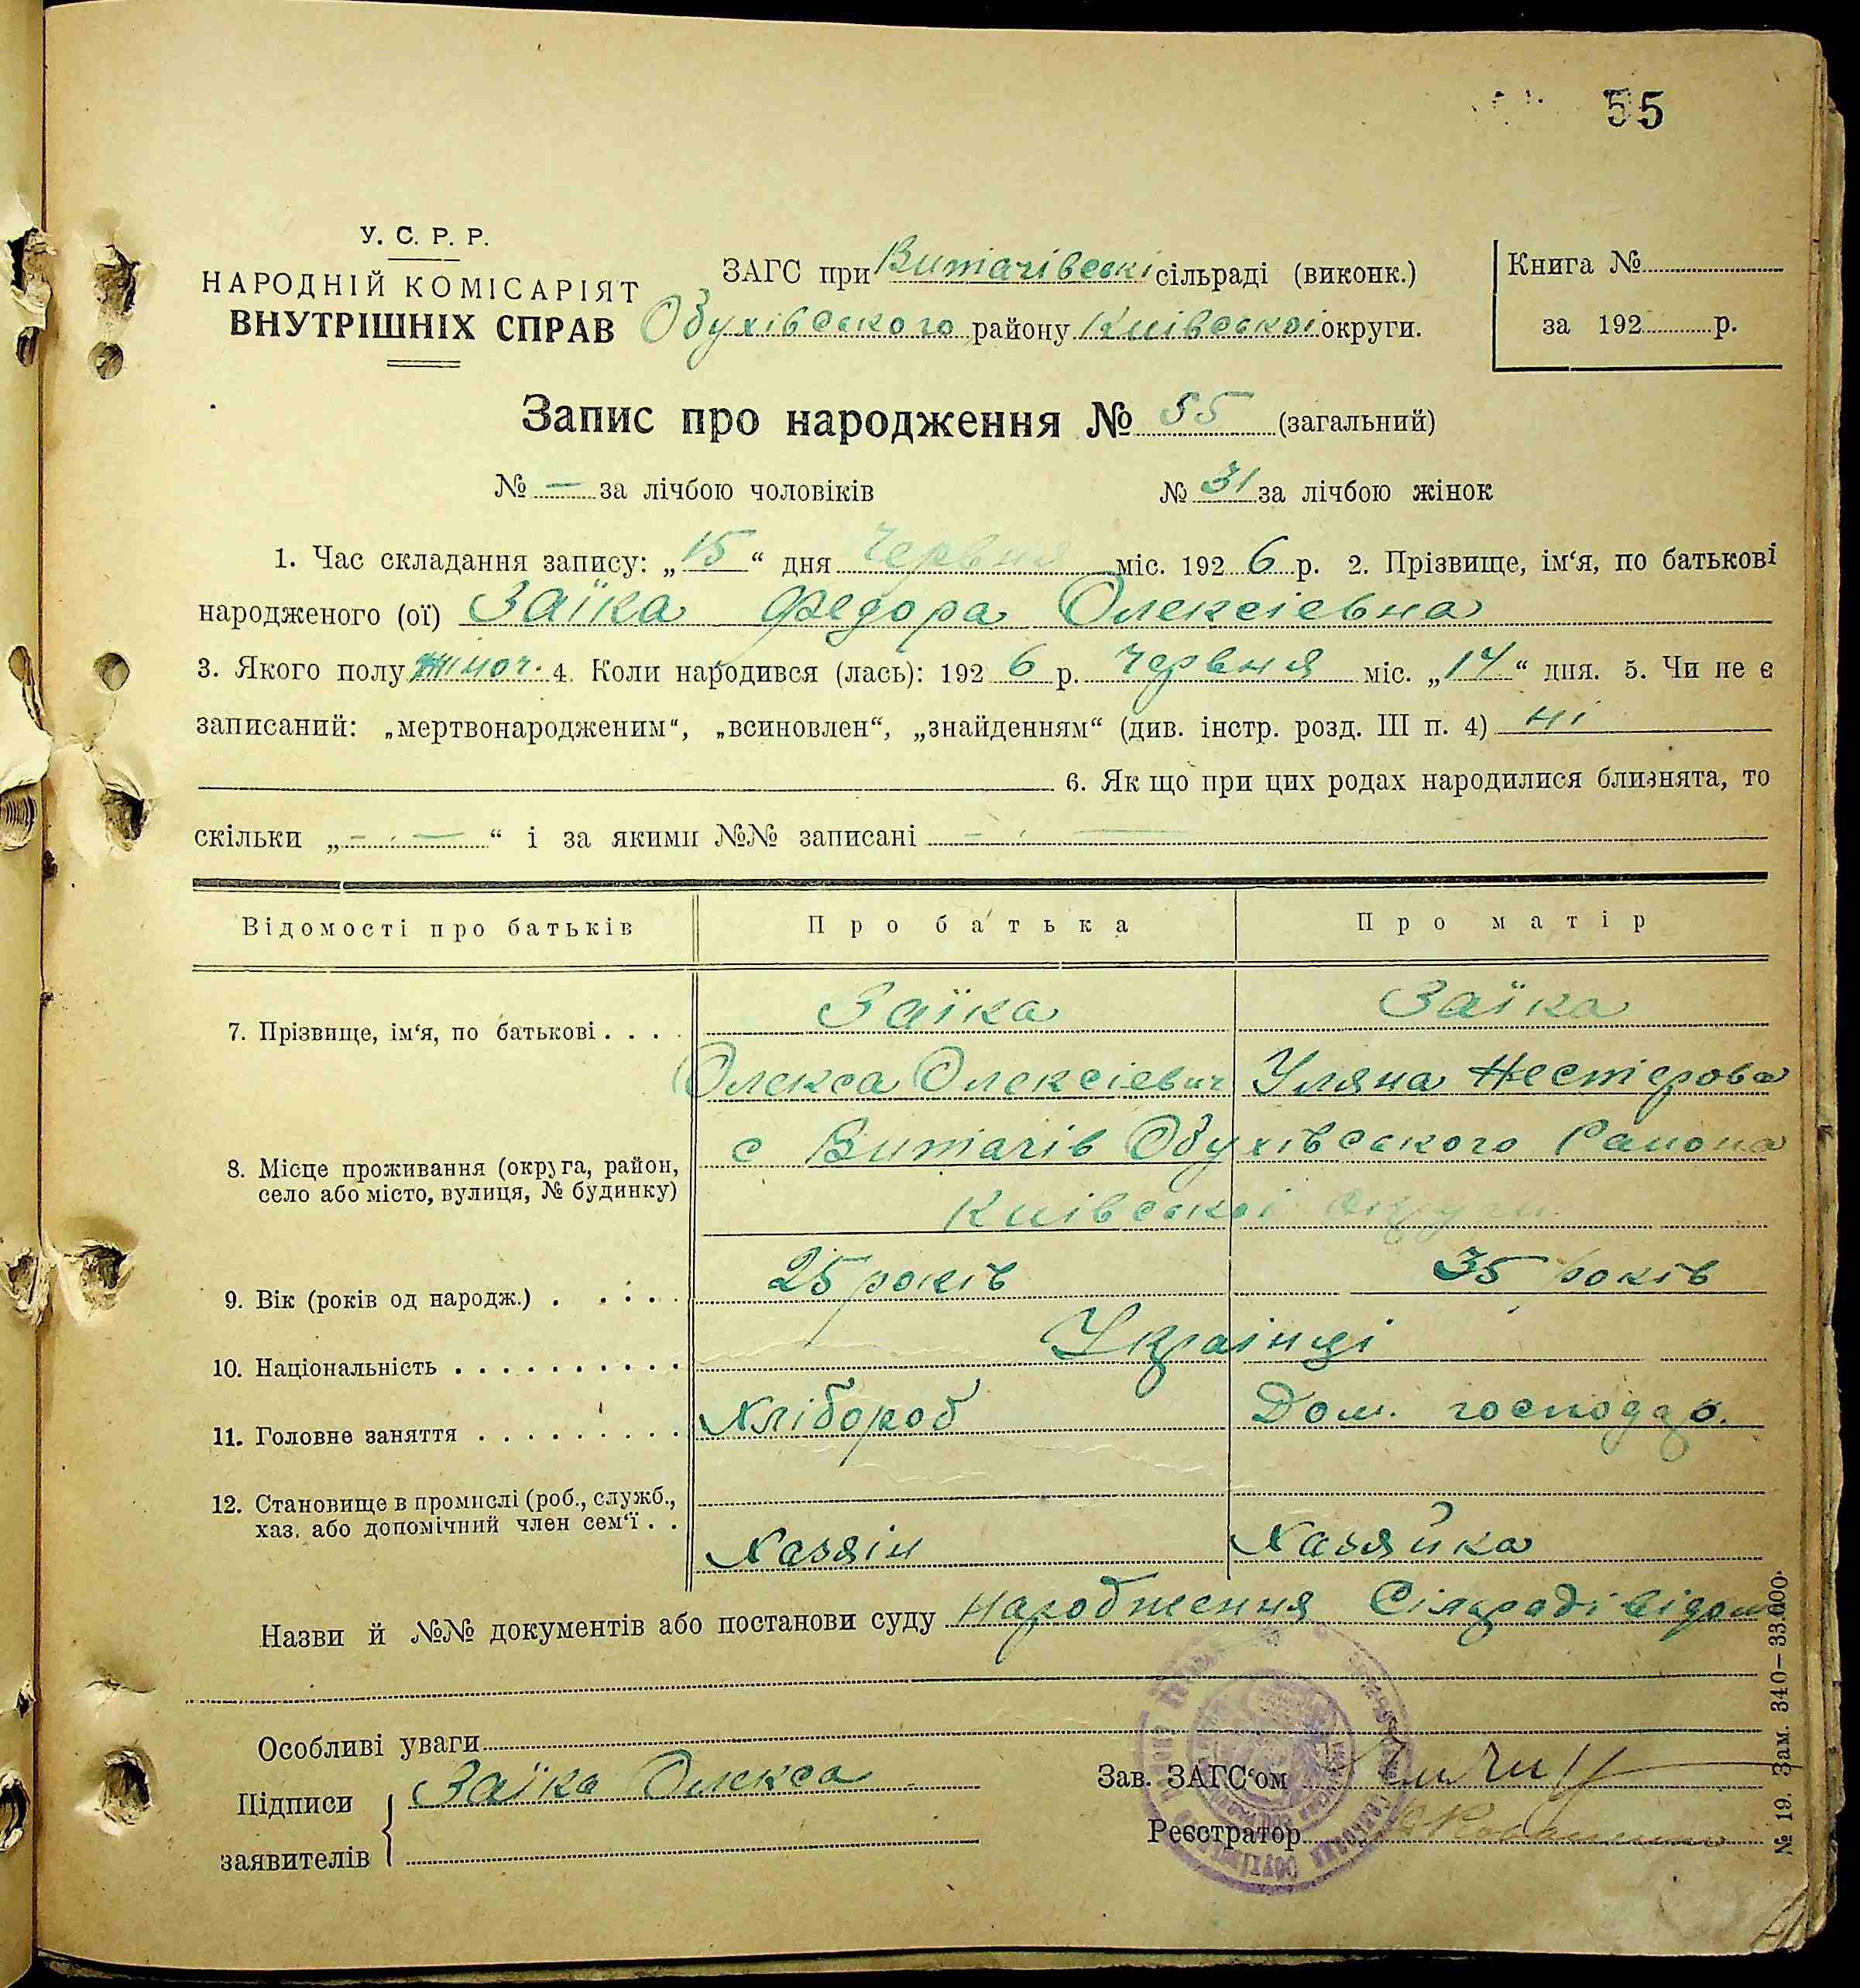 55
У. С. Р. Р.
НАРОДНІЙ КОМІСАРІЯТ
ВНУТРІШНІХ СПРАВ
ЗАГС при Витачівські сільраді (виконк.)
Обухівського району Київської округи.
Книга №
за 192 р.
Запис про народження № 55 (загальний)
№ — за лічбою чоловіків № 31 за лічбою жінок
1. Час складання запису: „15“ дня Червня міс. 1926 р. 2. Прізвище, ім‘я, по батькові
народженого (ої) Заїка Федора Олексіевна
3. Якого полу жіноч. 4. Коли народився (лась): 1926 р. Червня міс. „14“ дня. 5. Чи не є
записаний: „мертвонародженим“, „всиновлен“, „знайденням“ (див. інстр. розд. III п. 4) ні
6. Як що при цих родах народилися близнята, то
скільки „— · —“ і за якими №№ записані — · —
Відомості про батьків Про батька Про матір
7. Прізвище, ім‘я, по батькові . . . . Заїка Заїка
Олекса Олексіевич Уляна Нестерова
8. Місце проживання (округа, район, село або місто, вулиця, № будинку) с Витачів Обухівського Району
Київскої Округи
9. Вік (років од народж.) . . . . . 25 років 35 років
10. Національність . . . . . . . . . . Українці
11. Головне заняття . . . . . . . . . Хлібороб Дом. господар.
12. Становище в промислі (роб., служб.,
хаз. або допомічний член сем‘ї . . Хазяін Хазяйка
Назви й №№ документів або постанови суду Народження Сільраді відом
Особливі уваги
Підписи Заїка Олекса
заявителів
Зав. ЗАГС‘ом
Реєстратор
№ 19. Зам. 340—33.000